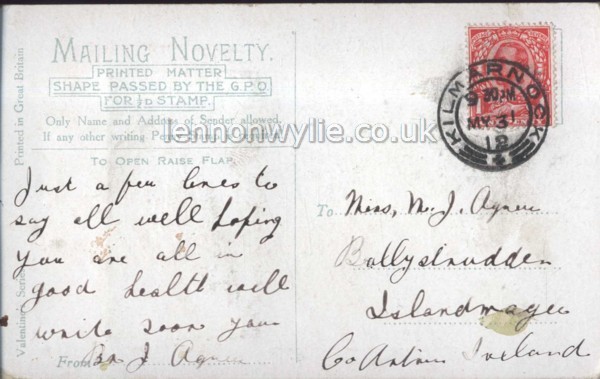 MAILING NOVELTY.
PRINTED MATTER
SHAPE PASSED BY THE G.P.O
FOR ½D STAMP.
Only Name and Address of Sender allowed.
If any other writing
lennonwylie.co.uk
TO OPEN RAISE FLAP.
Printed in Great Britain
Valentine's Series
Just a few lines to
say all well hoping
you are all in
good health will
write soon your
From Bro J Agnew
KILMARNOCK
MY 31
12
To Miss, M. J. Agnew
Ballystrudden
Islandmagee
Co Antrim Ireland